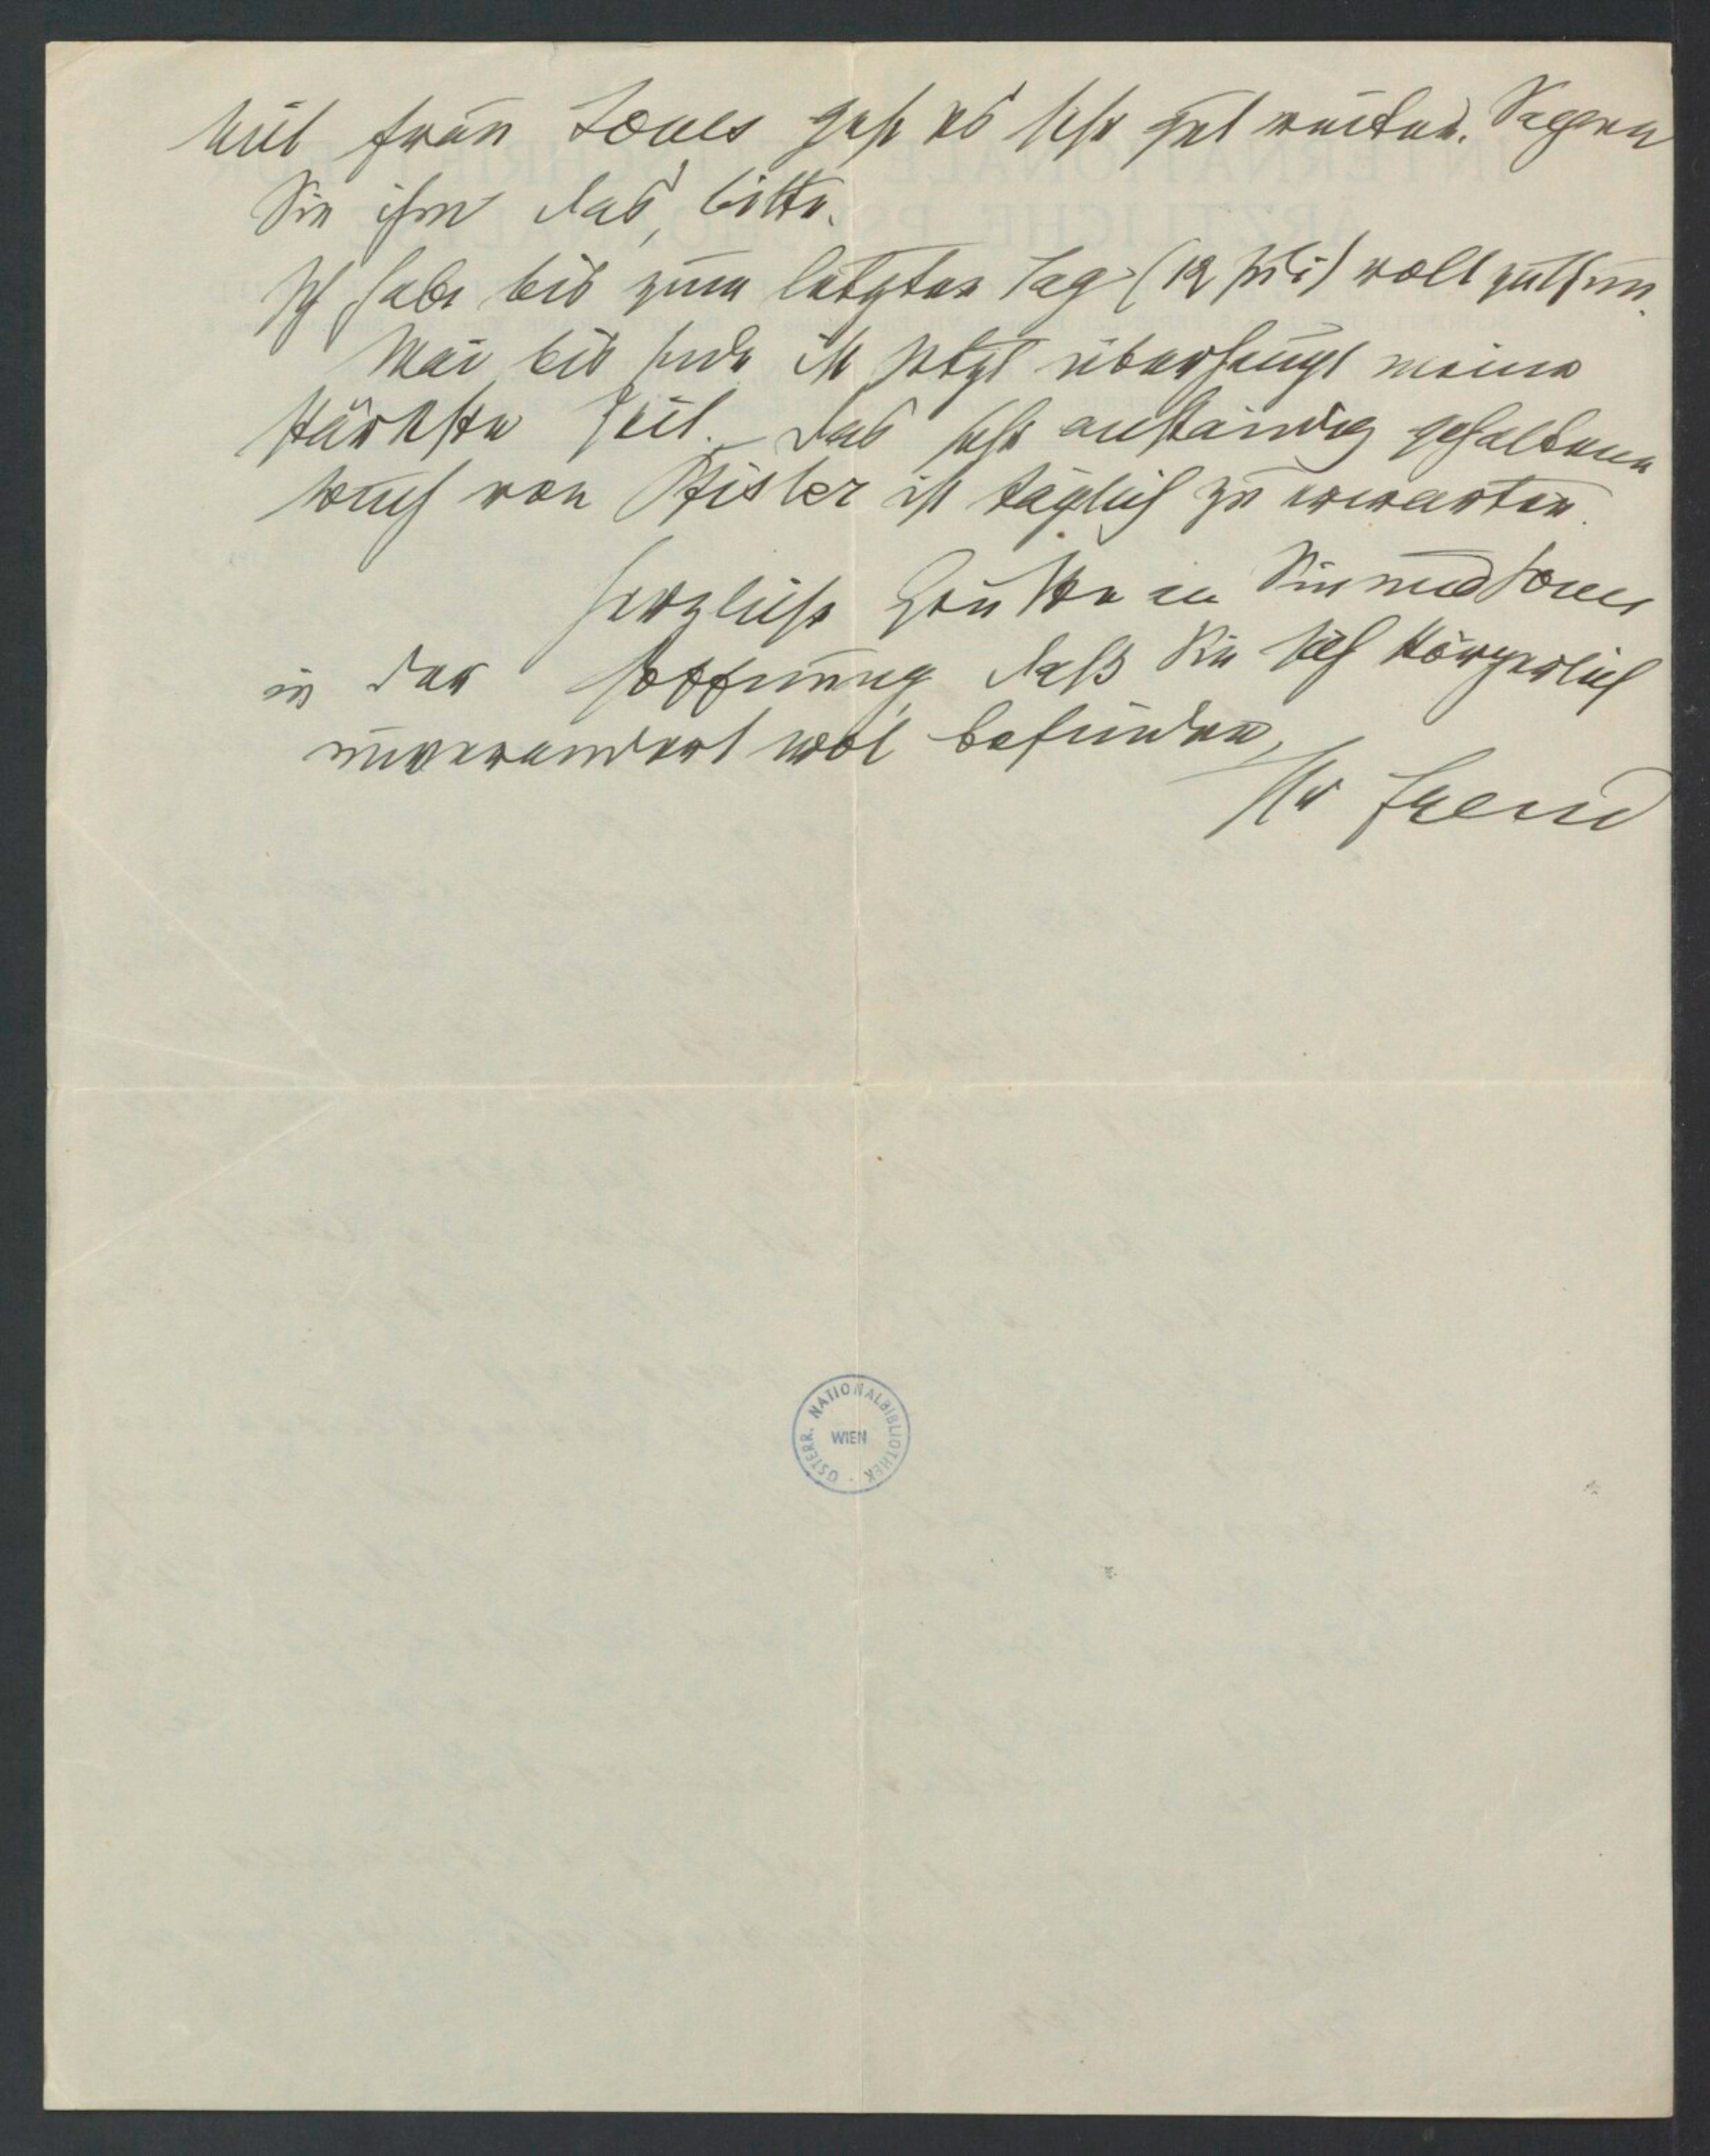 Mit Frau Jones geht es sehr gut weiter. Sagen
Sie ihm das, bitte.
Ich habe bis zum letzten Tag (12 Juli) voll zu thun.
Mai bis Ende ist jetzt überhaupt meine
stärkste Zeit. Das sehr anständig gehaltene
Buch von Pfister ist täglich zu erwarten.
Herzliche Grüße an Sie und Jones
in der Hoffnung, daß Sie sich körperlich
unverändert wol befinden,
Ihr Freud
ÖSTERR. NATIONALBIBLIOTHEK
WIEN